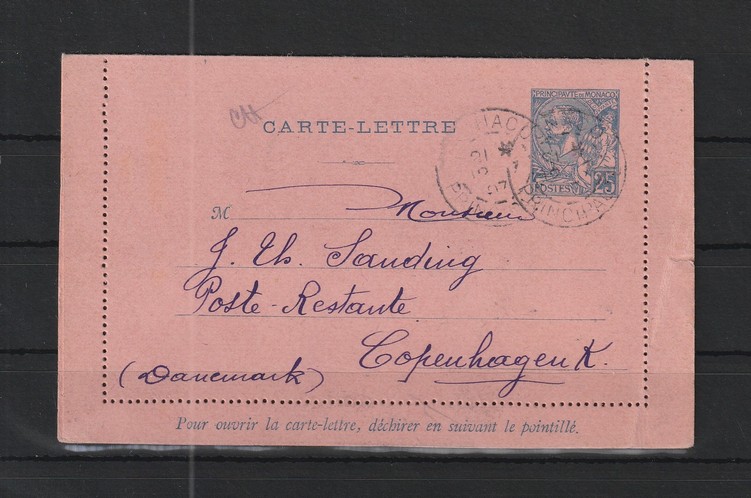 PRINCIPAUTÉ DE MONACO
CARTE-LETTRE
POSTES 25
M Monsieur
J. Th. Sanding
Poste-Restante
Copenhagen K.
(Danemark)
Pour ouvrir la carte-lettre, déchirer en suivant le pointillé.